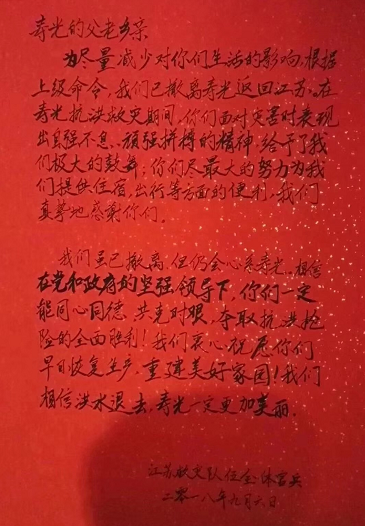 寿光的父老乡亲
为尽量减少对你们生活的影响,根据
上级命令,我们已撤离寿光返回江苏。在
寿光抗洪救灾期间,你们面对灾害时表现
出自强不息、顽强拼搏的精神,给予了我
们极大的鼓舞;你们尽最大的努力为我
们提供住宿、出行等方面的便利,我们
真挚地感谢你们。
我们虽已撤离,但仍会心系寿光。相信
在党和政府的坚强领导下,你们一定
能同心同德、共克时艰,夺取抗洪抢
险的全面胜利!我们衷心祝愿你们
早日恢复生产,重建美好家园!我们
相信洪水退去,寿光一定更加美丽。
江苏救灾队伍全体官兵
二零一八年九月六日